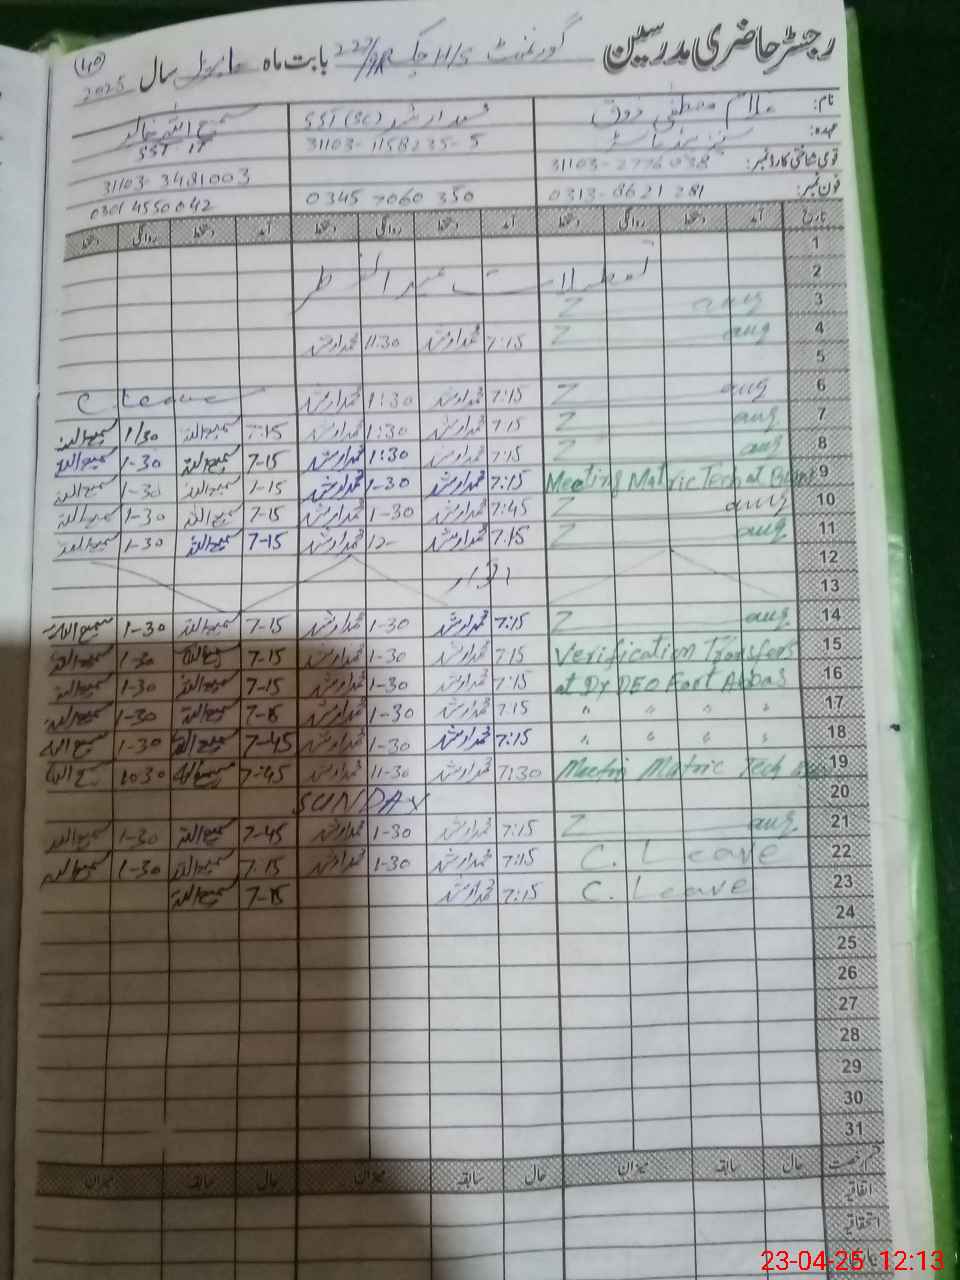 رجسٹر حاضری مدرسین گورنمنٹ H/S چک 227/9R بابت ماہ اپریل سال 2025
نام: غلام مصطفی ذوق محمد ارشد SST (SC) سمیع اللہ خالد
عہدہ: SST IT
قومی شناختی کارڈ نمبر: 31103-1158235-5 31103-3481003
فون نمبر: 0313-8621281 0345 7060 350 0301 4550042
تاریخ آمد دستخط روانگی دستخط آمد دستخط روانگی دستخط آمد دستخط روانگی دستخط
1
2 تعطیلات عید الفطر
3
4 7:15 محمد ارشد 11:30 محمد ارشد
5
6 7:15 محمد ارشد 1:30 محمد ارشد C Leave
7 7:15 محمد ارشد 1:30 محمد ارشد 7:15 سمیع اللہ 1/30 سمیع اللہ
8 7:15 محمد ارشد 1:30 محمد ارشد 7-15 سمیع اللہ 1-30 سمیع اللہ
9 Meeting Matric Tech at 7:15 محمد ارشد 1-30 محمد ارشد 1-15 سمیع اللہ 1-30 سمیع اللہ
10 7:45 محمد ارشد 1-30 محمد ارشد 7-15 سمیع اللہ 1-30 سمیع اللہ
11 7:15 محمد ارشد 12- محمد ارشد 7-15 سمیع اللہ 1-30 سمیع اللہ
12
13 اتوار
14 7:15 محمد ارشد 1-30 محمد ارشد 7-15 سمیع اللہ 1-30 سمیع اللہ
15 Verification Transfers 7:15 محمد ارشد 1-30 محمد ارشد 7-15 سمیع اللہ 1-30 سمیع اللہ
16 at Dy DEO Fort Abbas 7:15 محمد ارشد 1-30 محمد ارشد 7-15 سمیع اللہ 1-30 سمیع اللہ
17 " " " " 7:15 محمد ارشد 1-30 محمد ارشد 7-15 سمیع اللہ 1-30 سمیع اللہ
18 " " " " 7:15 محمد ارشد 1-30 محمد ارشد 7-45 سمیع اللہ 1-30 سمیع اللہ
19 Matric Tech 7:30 محمد ارشد 11-30 محمد ارشد 7-45 سمیع اللہ 10:30 سمیع اللہ
20 SUNDAY
21 7:15 محمد ارشد 1-30 محمد ارشد 7-45 سمیع اللہ 1-30 سمیع اللہ
22 C. Leave 7:15 محمد ارشد 1-30 محمد ارشد 7-15 سمیع اللہ 1-30 سمیع اللہ
23 C. Leave 7:15 محمد ارشد 7-15 سمیع اللہ
24
25
26
27
28
29
30
31
قسم رخصت حال سابقہ میزان حال سابقہ میزان حال سابقہ میزان
اتفاقیہ
استحقاقیہ
23-04-25 12:13